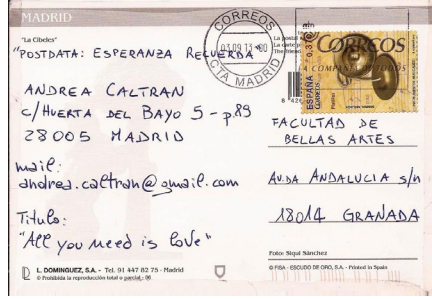 MADRID
"La Cibeles"
"POSTDATA: ESPERANZA RECUERDA
ANDREA CALTRAN
c/HUERTA DEL BAYO 5 - p.89
28005 MADRID
mail:
andrea.caltran@gmail.com
Titulo:
"All you need is love"
L. DOMINGUEZ, S.A. - Tel. 91 447 82 75 - Madrid
© Prohibida la reproducción total o parcial
CORREOS
03.09.13
CTA MADRID
La postal
The friend
ESPAÑA
CORREOS
CORREOS
A COMPANY
TODOS
FACULTAD DE
BELLAS ARTES
AV.DA ANDALUCIA s/n
18014 GRANADA
Foto: Siqui Sánchez
© FISA - ESCUDO DE ORO, S.A. - Printed in Spain